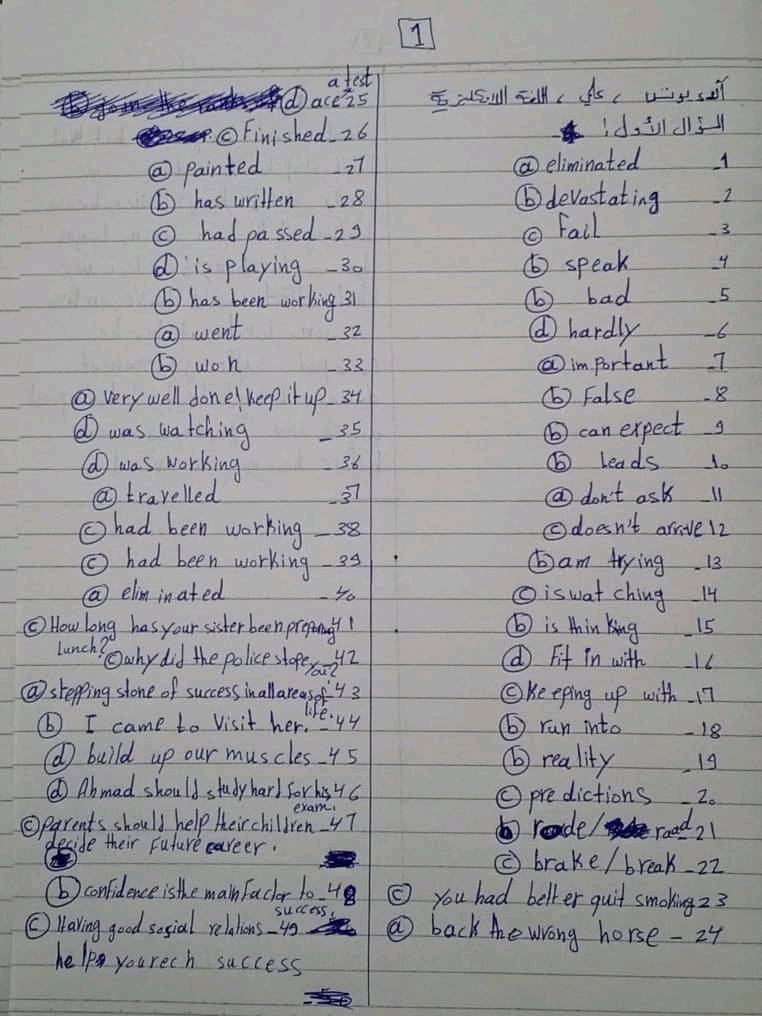 1
آلاء يونس ، علي ، اللغة الانكليزية
السؤال الأول :
ⓐ eliminated -1
ⓑ devastating -2
ⓒ Fail -3
ⓑ speak -4
ⓑ bad -5
ⓓ hardly -6
ⓐ important -7
ⓑ False -8
ⓑ can expect -9
ⓑ leads -10
ⓐ don't ask -11
ⓒ doesn't arrive 12
ⓑ am trying -13
ⓒ is watching -14
ⓑ is thinking -15
ⓓ fit in with -16
ⓒ Keeping up with -17
ⓑ run into -18
ⓑ reality -19
ⓒ predictions -20
ⓑ rode/ road -21
ⓒ brake/break -22
ⓒ you had better quit smoking 23
ⓐ back the wrong horse - 24
ⓓ ace a test 25
ⓒ Finished - 26
ⓐ painted -27
ⓑ has written -28
ⓒ had passed -29
ⓓ is playing -30
ⓑ has been working 31
ⓐ went -32
ⓑ won -33
ⓐ very well done! keep it up - 34
ⓓ was watching -35
ⓓ was working -36
ⓐ travelled -37
ⓒ had been working - 38
ⓒ had been working - 39
ⓐ eliminated -40
ⓒ How long has your sister been preparing 41
lunch?
ⓒ why did the police stope you? 42
ⓐ stepping stone of success in all areas of 43
life.
ⓑ I came to visit her. -44
ⓓ build up our muscles - 45
ⓓ Ahmad should study hard for his 46
exam.
ⓒ parents should help their children - 47
decide their future career.
ⓑ confidence is the main factor to - 48
success.
ⓒ Having good social relations - 49
helps you rech success